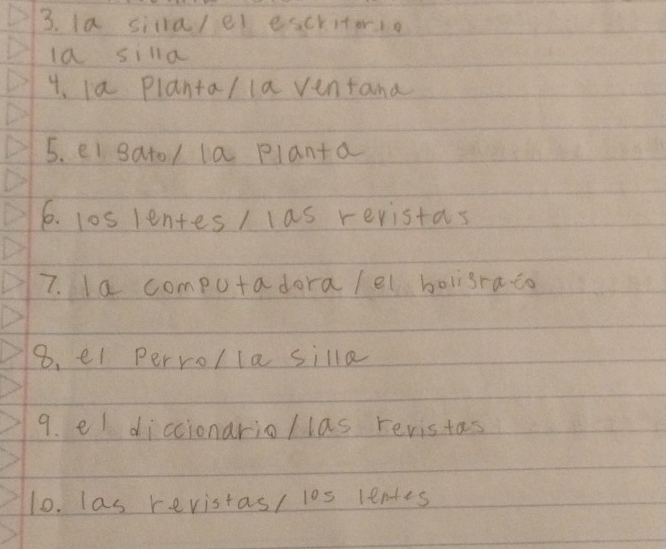 3. la silla/ el escritorio
la silla
4. la Planta/ la ventana
5. el gato/ la Planta
6. los lentes / las revistas
7. la computadora / el boligrafo
8. el Perro/ la silla
9. el diccionario / las revistas
10. las revistas/ los lentes